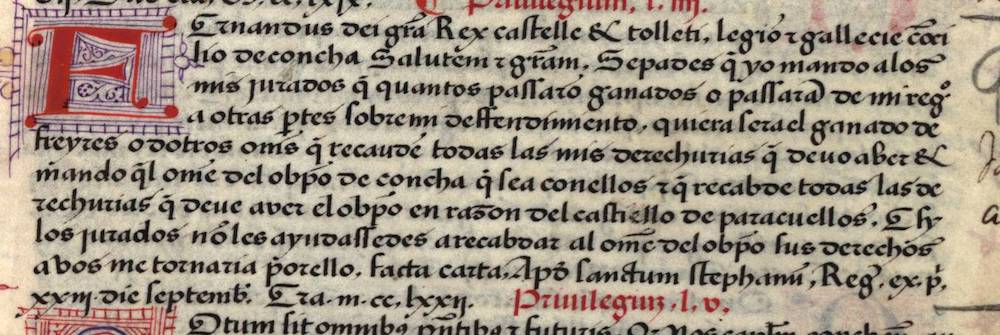 Privilegium. l. iiij.
Ernandus dei gr̃a Rex castelle & tolleti. legiõ ⁊ gallecie cõci
lio deconcha Salutem ⁊ gr̃am. Sepades q̃ yo mando alos
mis jurados q̃ quantos passarõ ganados o passarã de mi regº
a otras p̃tes sobre mi deffendimiento. quiera sera el ganado de
freyres o dotros om̃s q̃ recaude todas las mis derechurias q̃ devo aber &
mãndo q̃l ome del obp̃o de concha q̃ sea conellos ⁊ q̃ recabde todas las de
rechurias q̃ deve aver el obp̃o en razon del castiello de paracuellos. E sy
los jurados nõ les ayudassedes a recabdar al om̃e del obp̃o sus derechos
avos me tornaria p̃orello. facta carta. Apd̃ sanctum stephanũ, Reg̃. ex. p̃.
xxiij. die septemb̃. Era. m. cc. lxxij. Privilegiuz. l. v.
Otum sit omnibus p̃ntibꝯ ⁊ futuris.